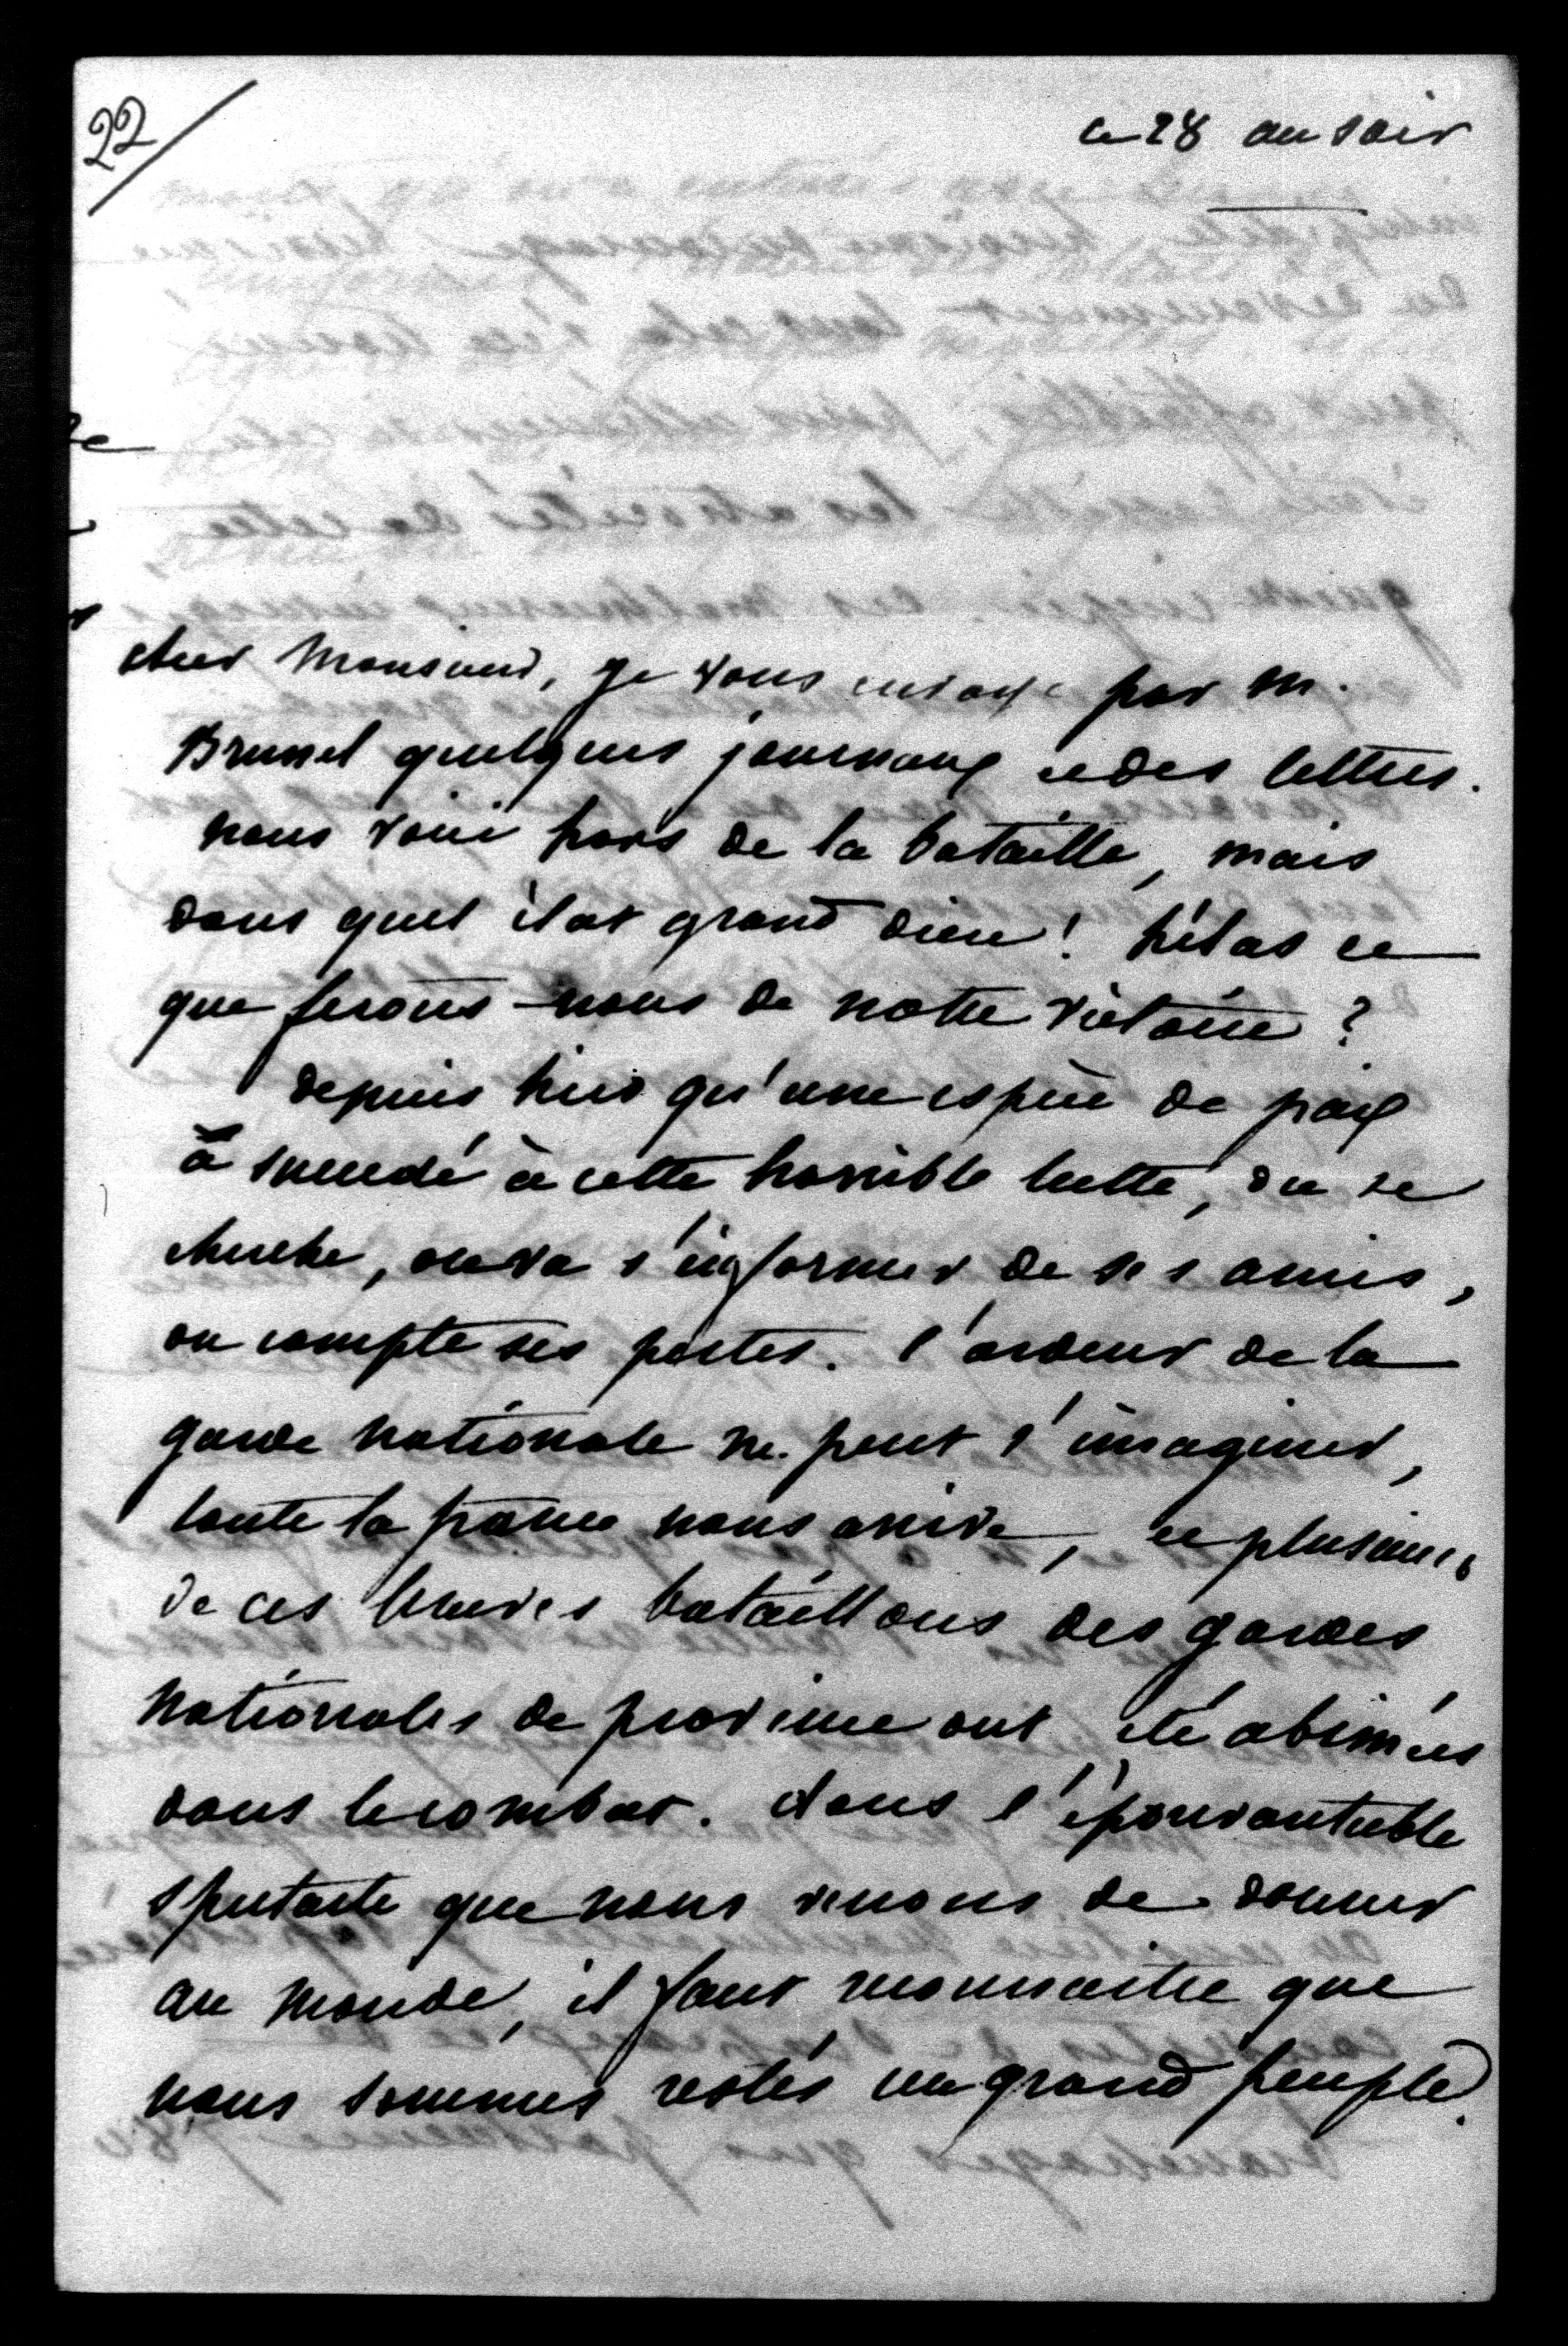 22/
ce 28 au soir
cher Monsieur, je vous envoye par M.
Brunel quelques journaux et des lettres.
nous voici hors de la bataille, mais
dans quel état grand dieu! hélas et
que ferons-nous de notre victoire?
depuis hier qu'une espèce de paix
a succédé à cette horrible lutte, on se
cherche, on va s'informer de ses amis,
on compte ses pertes. l'ardeur de la
garde nationale ne peut s'imaginer,
toute la france nous arrive, et plusieurs
de ces braves bataillons des gardes
nationales de province ont été abimées
dans le combat. dans l'épouvantable
spectacle que nous venons de donner
au monde, il faut reconnaitre que
nous sommes restés un grand peuple.